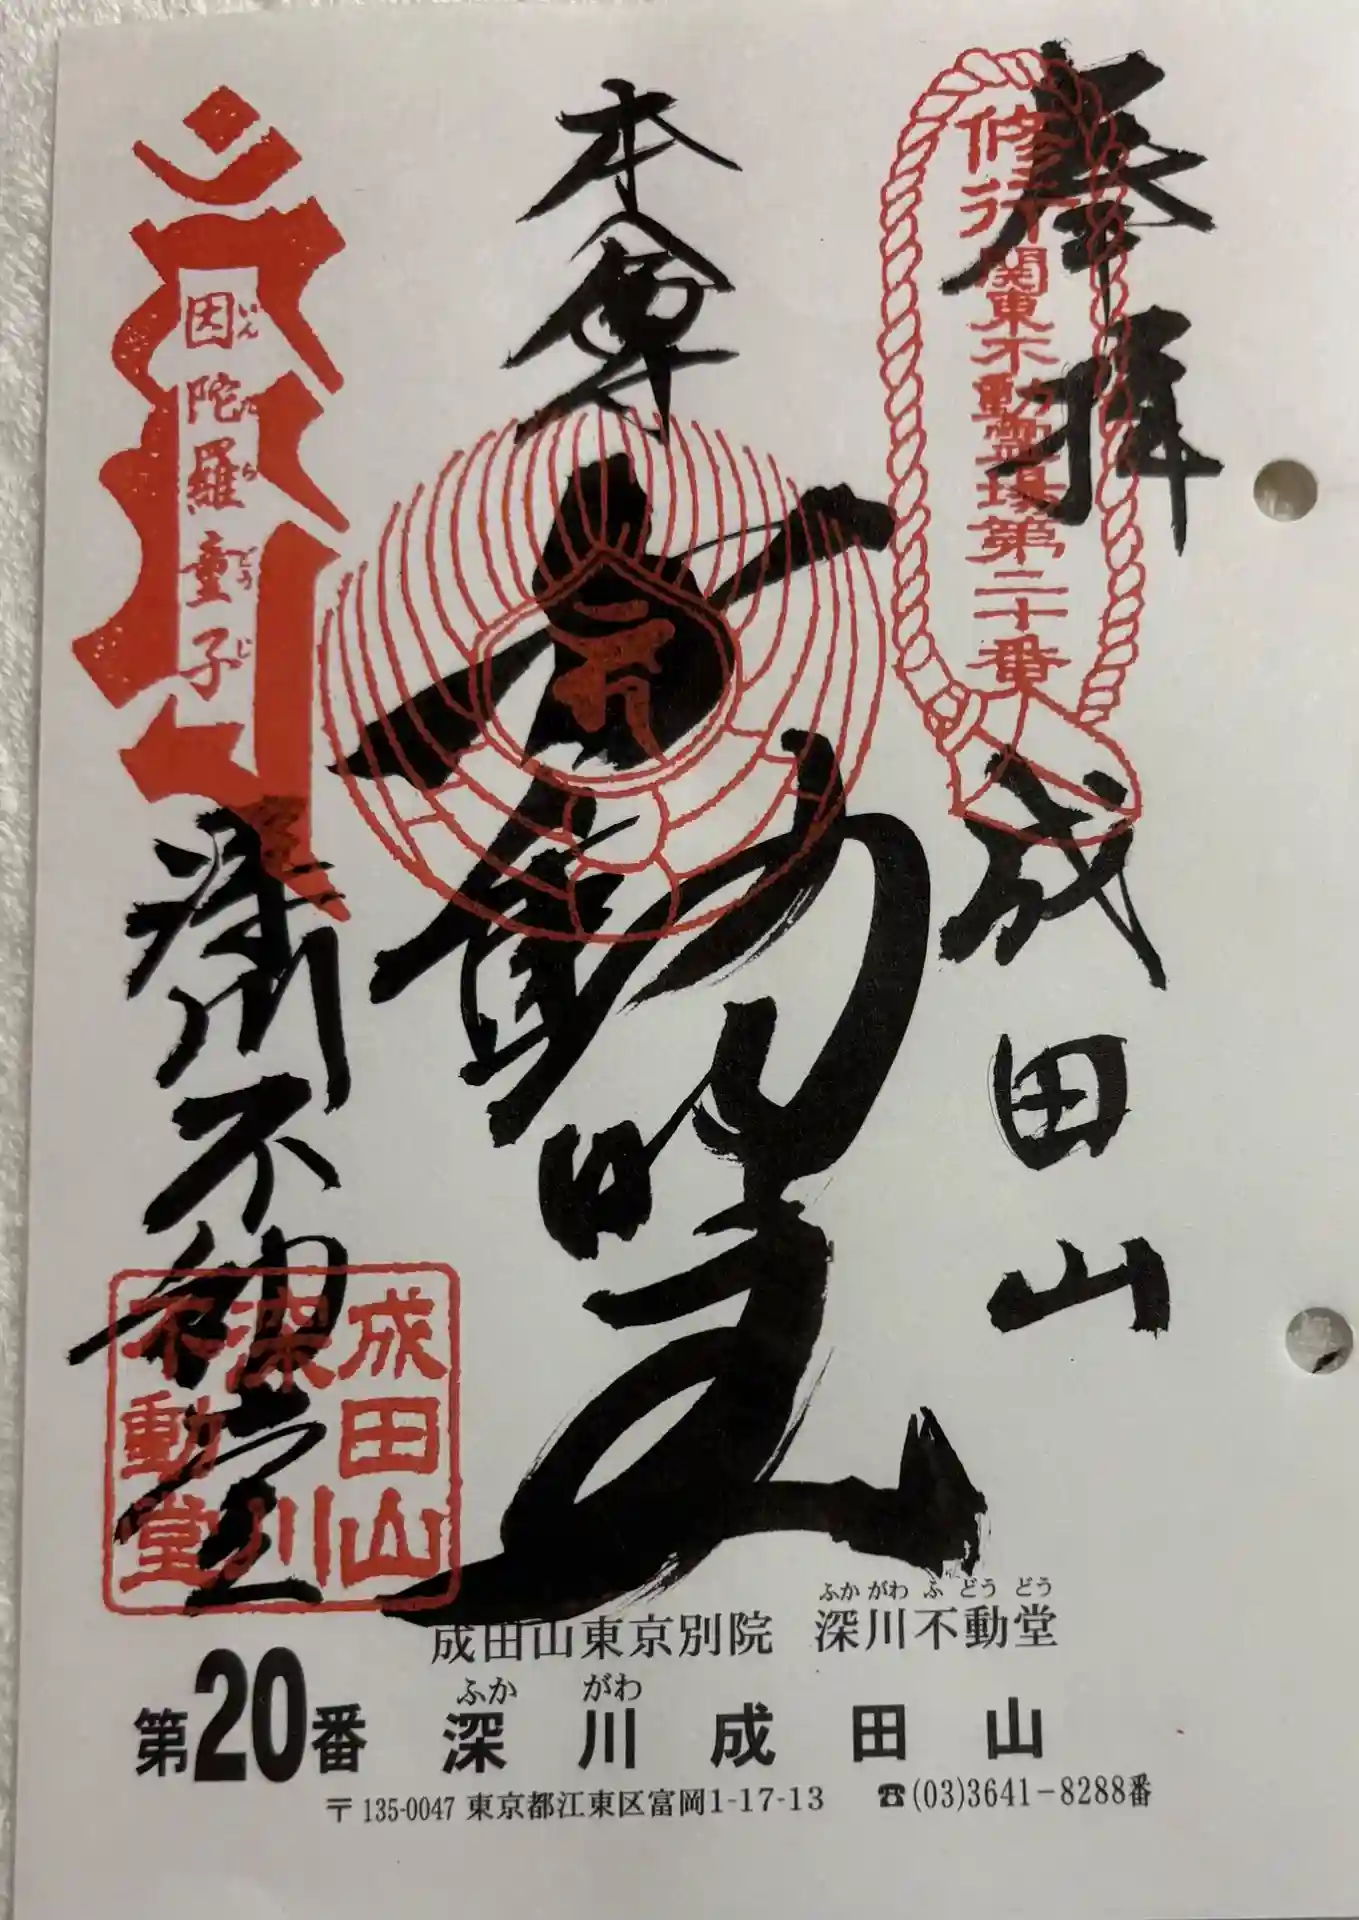 奉拝
修行
関東不動霊場第二十番
成田山
本尊
不動明王
因陀羅童子
いん だ ら どう じ
深川不動堂
成田山
深川
不動堂
ふか がわ ふ どう どう
成田山東京別院 深川不動堂
ふか がわ
第20番 深川成田山
〒135-0047 東京都江東区富岡1-17-13 ☎(03)3641-8288番